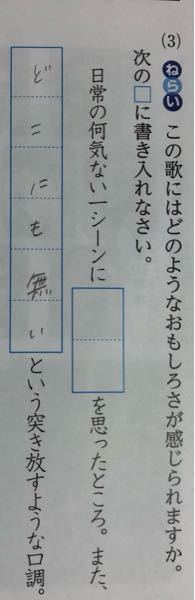 (3) ねらい この歌にはどのようなおもしろさが感じられますか。
次の□に書き入れなさい。
日常の何気ない一シーンに
を思ったところ。また、
どこにも無い
という突き放すような口調。